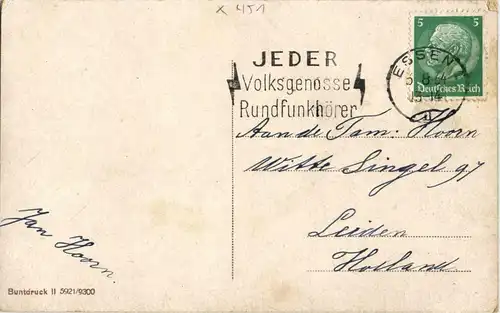 x 451
JEDER
Volksgenosse
Rundfunkhörer
5 5
Deutsches Reich
ESSEN
Aan de Fam: Hoorn
Witte Singel 97
Leiden
Holland
Jan Hoorn.
Buntdruck II 5921/9300